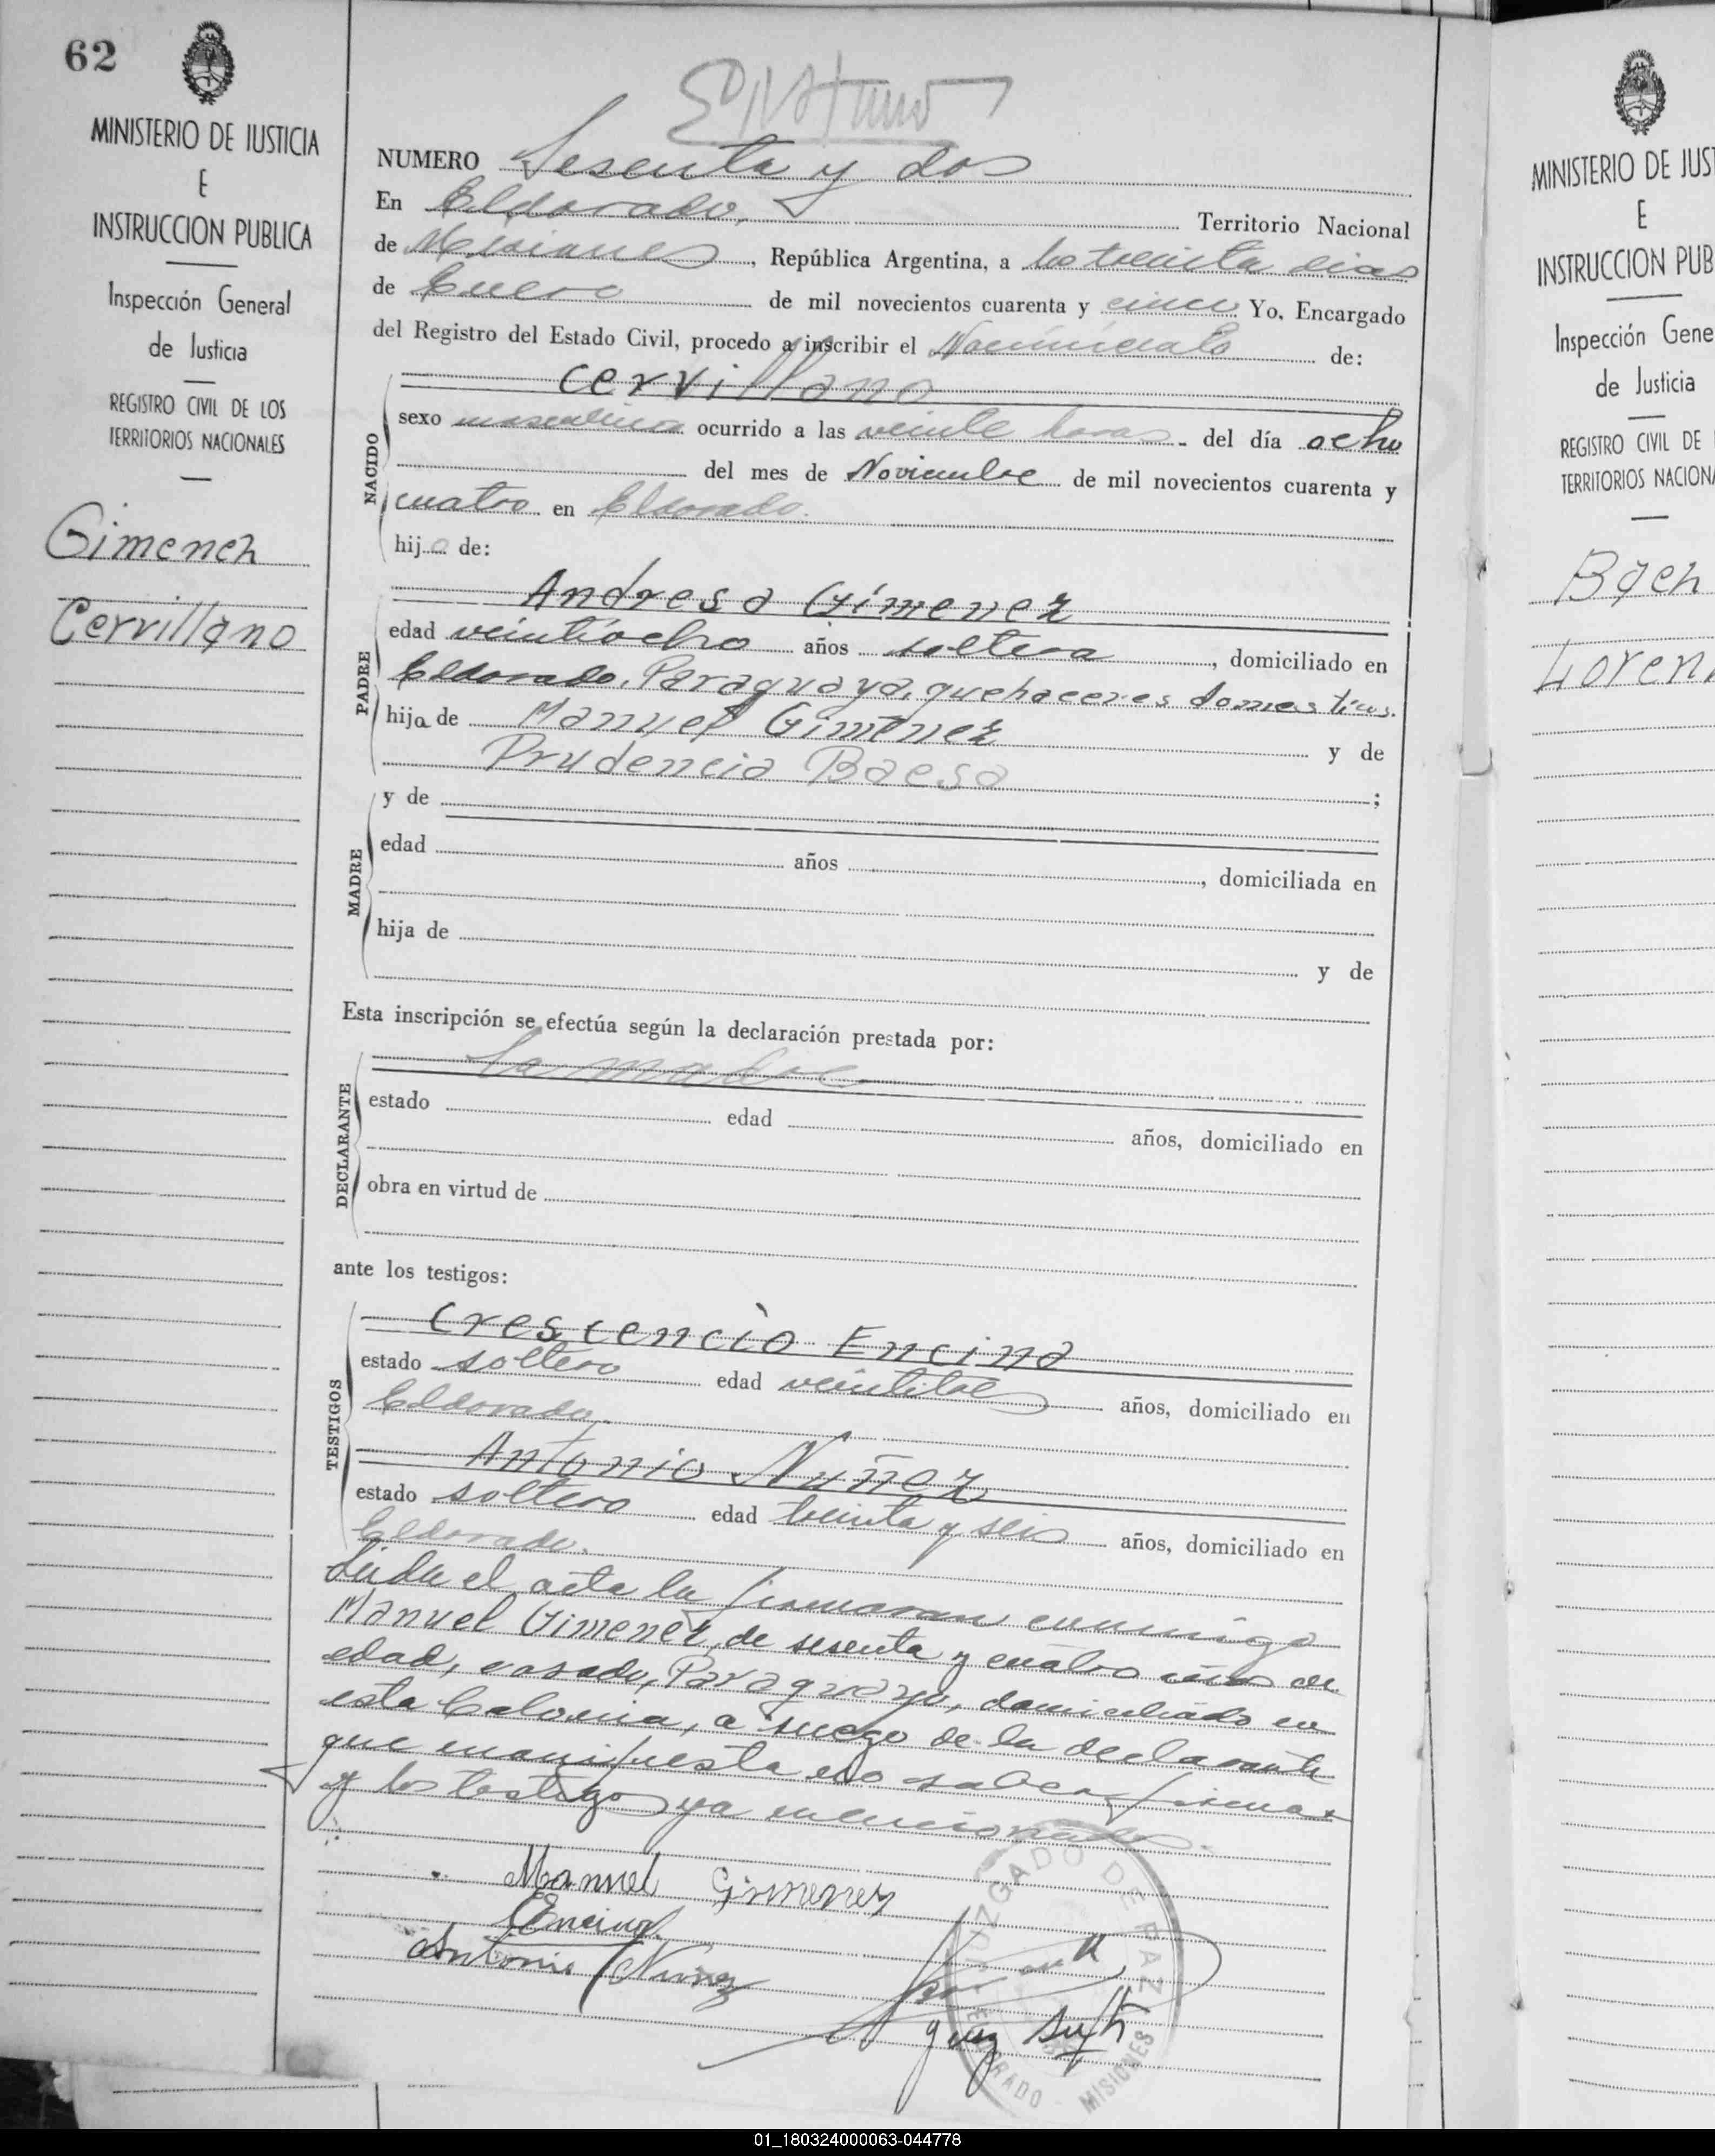 62
MINISTERIO DE JUSTICIA
E
INSTRUCCION PUBLICA
Inspección General
de Justicia
REGISTRO CIVIL DE LOS
TERRITORIOS NACIONALES
Gimenez
Cervillano
NUMERO Sesenta y dos
En Eldorado, Territorio Nacional
de Misiones, República Argentina, a los treinta dias
de Enero de mil novecientos cuarenta y cinco Yo, Encargado
del Registro del Estado Civil, procedo a inscribir el Nacimiento de:
NACIDO
Cervillano
sexo masculino ocurrido a las veinte horas - del día ocho
del mes de Noviembre de mil novecientos cuarenta y
cuatro en Eldorado.
hijo de:
PADRE
Andresa Gimenez
edad veintiocho años soltera, domiciliado en
Eldorado, Paraguaya, quehaceres domesticos.
hija de Manuel Gimenez y de
Prudencia Baesa ;
MADRE
y de
edad años , domiciliada en
hija de
y de
Esta inscripción se efectúa según la declaración prestada por:
DECLARANTE
La madre
estado edad años, domiciliado en
obra en virtud de
ante los testigos:
TESTIGOS
Crescencio Encina
estado soltero edad veintitres años, domiciliado en
Eldorado,
Antonio Nuñez
estado soltero edad treinta y seis años, domiciliado en
Eldorado.
Leida el acta la firmaron conmigo
Manuel Gimenez, de sesenta y cuatro años de
edad, casado, Paraguayo, domiciliado en
esta Colonia, a ruego de la declarante
que manifiesta no saber firmar
y los testigos ya mencionados.
Manuel Gimenez
Encina
Antonio Nuñez
JUZGADO DE PAZ
ELDORADO MISIONES
MINISTERIO DE JUST
E
INSTRUCCION PUB
Inspección Gene
de Justicia
REGISTRO CIVIL DE
TERRITORIOS NACION
Baez
Loren
01_180324000063-044778